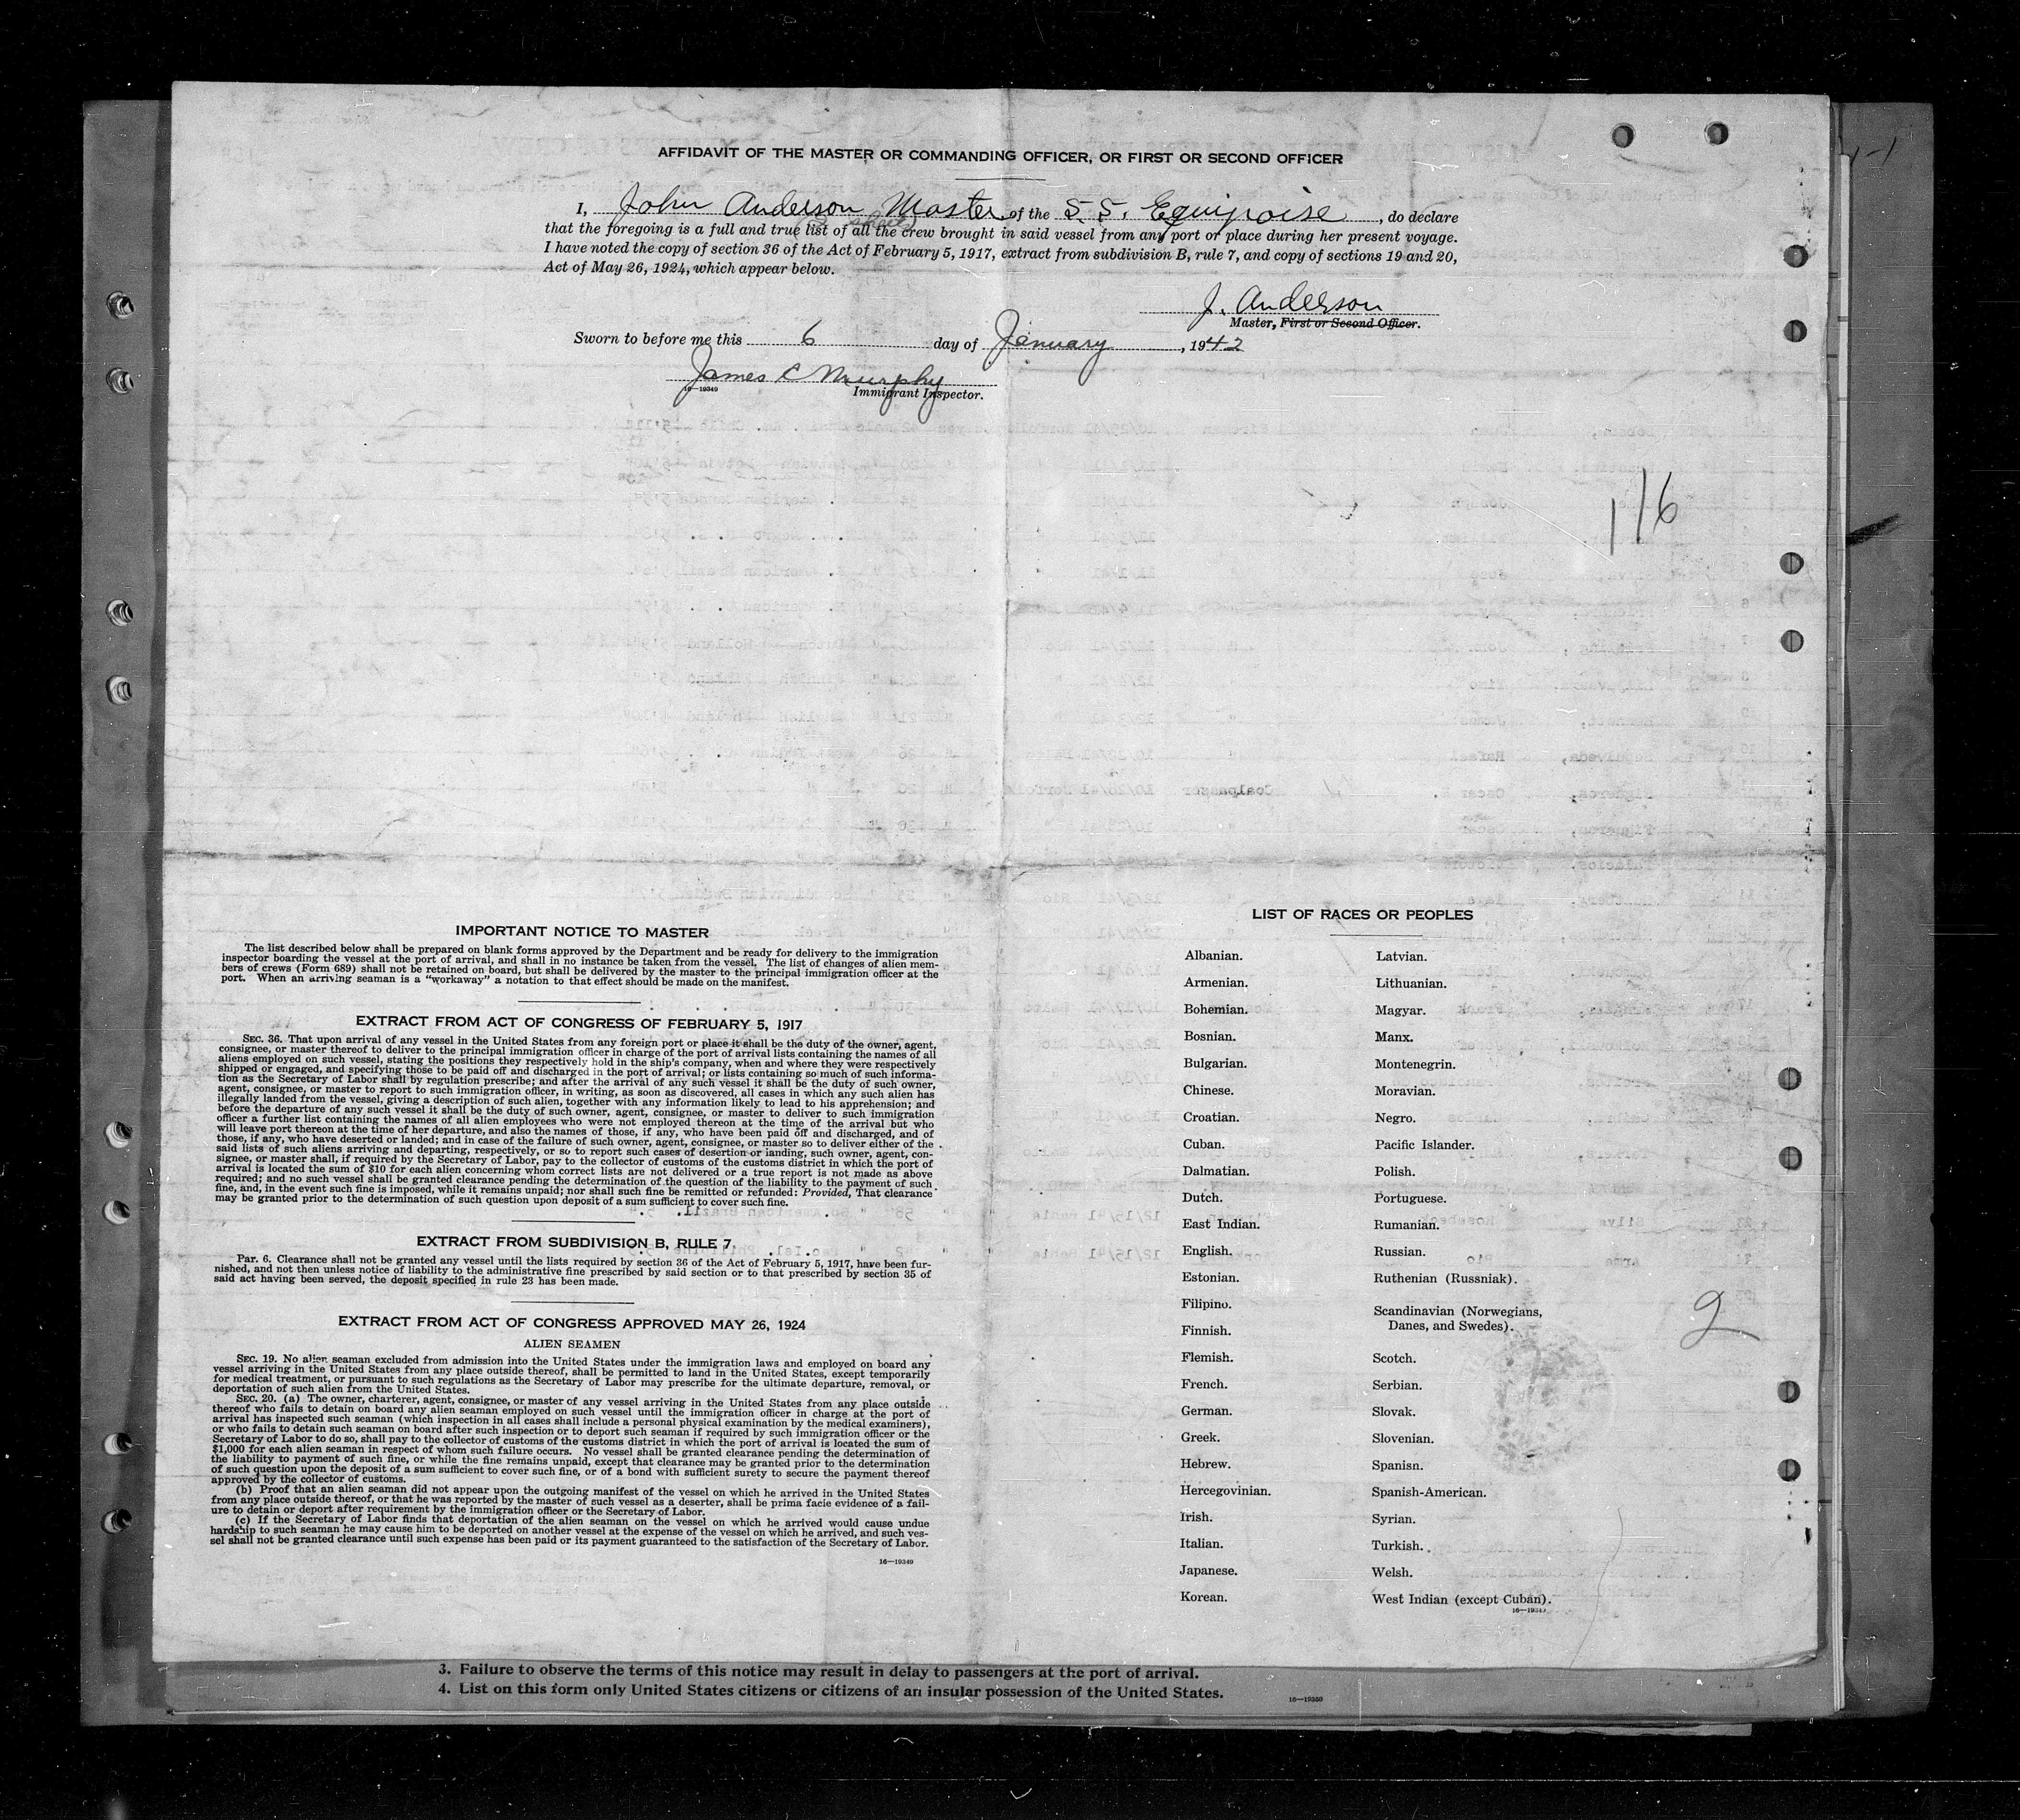 AFFIDAVIT OF THE MASTER OR COMMANDING OFFICER, OR FIRST OR SECOND OFFICER
I, John Anderson Master of the S.S. Equipoise, do declare
that the foregoing is a full and true list of all the crew brought in said vessel from any port or place during her present voyage.
I have noted the copy of section 36 of the Act of February 5, 1917, extract from subdivision B, rule 7, and copy of sections 19 and 20,
Act of May 26, 1924, which appear below.
J. Anderson
Master, First or Second Officer.
Sworn to before me this 6 day of January, 1942
James C Murphy
16—19349
Immigrant Inspector.
1/6
IMPORTANT NOTICE TO MASTER
The list described below shall be prepared on blank forms approved by the Department and be ready for delivery to the immigration
inspector boarding the vessel at the port of arrival, and shall in no instance be taken from the vessel. The list of changes of alien mem-
bers of crews (Form 689) shall not be retained on board, but shall be delivered by the master to the principal immigration officer at the
port. When an arriving seaman is a "workaway" a notation to that effect should be made on the manifest.
EXTRACT FROM ACT OF CONGRESS OF FEBRUARY 5, 1917
SEC. 36. That upon arrival of any vessel in the United States from any foreign port or place it shall be the duty of the owner, agent,
consignee, or master thereof to deliver to the principal immigration officer in charge of the port of arrival lists containing the names of all
aliens employed on such vessel, stating the positions they respectively hold in the ship's company, when and where they were respectively
shipped or engaged, and specifying those to be paid off and discharged in the port of arrival; or lists containing so much of such informa-
tion as the Secretary of Labor shall by regulation prescribe; and after the arrival of any such vessel it shall be the duty of such owner,
agent, consignee, or master to report to such immigration officer, in writing, as soon as discovered, all cases in which any such alien has
illegally landed from the vessel, giving a description of such alien, together with any information likely to lead to his apprehension; and
before the departure of any such vessel it shall be the duty of such owner, agent, consignee, or master to deliver to such immigration
officer a further list containing the names of all alien employees who were not employed thereon at the time of the arrival but who
will leave port thereon at the time of her departure, and also the names of those, if any, who have been paid off and discharged, and of
those, if any, who have deserted or landed; and in case of the failure of such owner, agent, consignee, or master so to deliver either of the
said lists of such aliens arriving and departing, respectively, or so to report such cases of desertion or landing, such owner, agent, con-
signee, or master shall, if required by the Secretary of Labor, pay to the collector of customs of the customs district in which the port of
arrival is located the sum of $10 for each alien concerning whom correct lists are not delivered or a true report is not made as above
required; and no such vessel shall be granted clearance pending the determination of the question of the liability to the payment of such
fine, and, in the event such fine is imposed, while it remains unpaid; nor shall such fine be remitted or refunded: Provided, That clearance
may be granted prior to the determination of such question upon deposit of a sum sufficient to cover such fine.
EXTRACT FROM SUBDIVISION B, RULE 7
Par. 6. Clearance shall not be granted any vessel until the lists required by section 36 of the Act of February 5, 1917, have been fur-
nished, and not then unless notice of liability to the administrative fine prescribed by said section or to that prescribed by section 35 of
said act having been served, the deposit specified in rule 23 has been made.
EXTRACT FROM ACT OF CONGRESS APPROVED MAY 26, 1924
ALIEN SEAMEN
SEC. 19. No alien seaman excluded from admission into the United States under the immigration laws and employed on board any
vessel arriving in the United States from any place outside thereof, shall be permitted to land in the United States, except temporarily
for medical treatment, or pursuant to such regulations as the Secretary of Labor may prescribe for the ultimate departure, removal, or
deportation of such alien from the United States.
SEC. 20. (a) The owner, charterer, agent, consignee, or master of any vessel arriving in the United States from any place outside
thereof who fails to detain on board any alien seaman employed on such vessel until the immigration officer in charge at the port of
arrival has inspected such seaman (which inspection in all cases shall include a personal physical examination by the medical examiners),
or who fails to detain such seaman on board after such inspection or to deport such seaman if required by such immigration officer or the
Secretary of Labor to do so, shall pay to the collector of customs of the customs district in which the port of arrival is located the sum of
$1,000 for each alien seaman in respect of whom such failure occurs. No vessel shall be granted clearance pending the determination of
the liability to payment of such fine, or while the fine remains unpaid, except that clearance may be granted prior to the determination
of such question upon the deposit of a sum sufficient to cover such fine, or of a bond with sufficient surety to secure the payment thereof
approved by the collector of customs.
(b) Proof that an alien seaman did not appear upon the outgoing manifest of the vessel on which he arrived in the United States
from any place outside thereof, or that he was reported by the master of such vessel as a deserter, shall be prima facie evidence of a fail-
ure to detain or deport after requirement by the immigration officer or the Secretary of Labor.
(c) If the Secretary of Labor finds that deportation of the alien seaman on the vessel on which he arrived would cause undue
hardship to such seaman he may cause him to be deported on another vessel at the expense of the vessel on which he arrived, and such ves-
sel shall not be granted clearance until such expense has been paid or its payment guaranteed to the satisfaction of the Secretary of Labor.
16—19349
LIST OF RACES OR PEOPLES
Albanian.
Armenian.
Bohemian.
Bosnian.
Bulgarian.
Chinese.
Croatian.
Cuban.
Dalmatian.
Dutch.
East Indian.
English.
Estonian.
Filipino.
Finnish.
Flemish.
French.
German.
Greek.
Hebrew.
Hercegovinian.
Irish.
Italian.
Japanese.
Korean.
Latvian.
Lithuanian.
Magyar.
Manx.
Montenegrin.
Moravian.
Negro.
Pacific Islander.
Polish.
Portuguese.
Rumanian.
Russian.
Ruthenian (Russniak).
Scandinavian (Norwegians,
Danes, and Swedes).
Scotch.
Serbian.
Slovak.
Slovenian.
Spanish.
Spanish-American.
Syrian.
Turkish.
Welsh.
West Indian (except Cuban).
16—19349
2
3. Failure to observe the terms of this notice may result in delay to passengers at the port of arrival.
4. List on this form only United States citizens or citizens of an insular possession of the United States.
16—19350